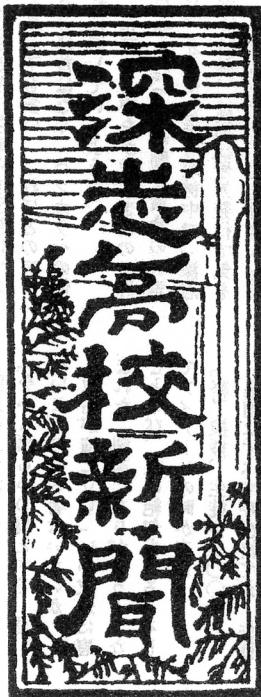 深志高校新聞